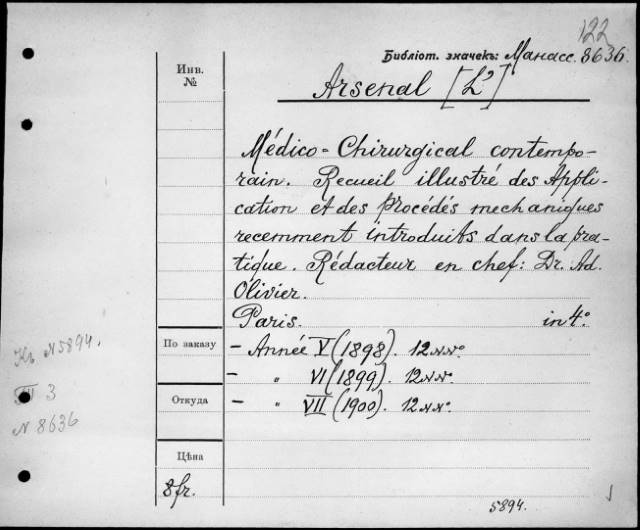 122
Библіот. значекъ: Манасс. 8636.
Инв.
№
Arsenal [L']
Médico-Chirurgical contempo-
rain. Recueil illustré des Appli-
cation et des procédés mechaniques
recemment introduits dans la pra-
tique. Rédacteur en chef: Dr. Ad.
Olivier.
Paris. in 4°
По заказу
– Année V (1898). 12 №№.
– " VI (1899). 12 №№.
Откуда
– " VII (1900). 12 №№.
Цѣна
8 fr.
5894.
Къ N 5894.
III 3
N 8636